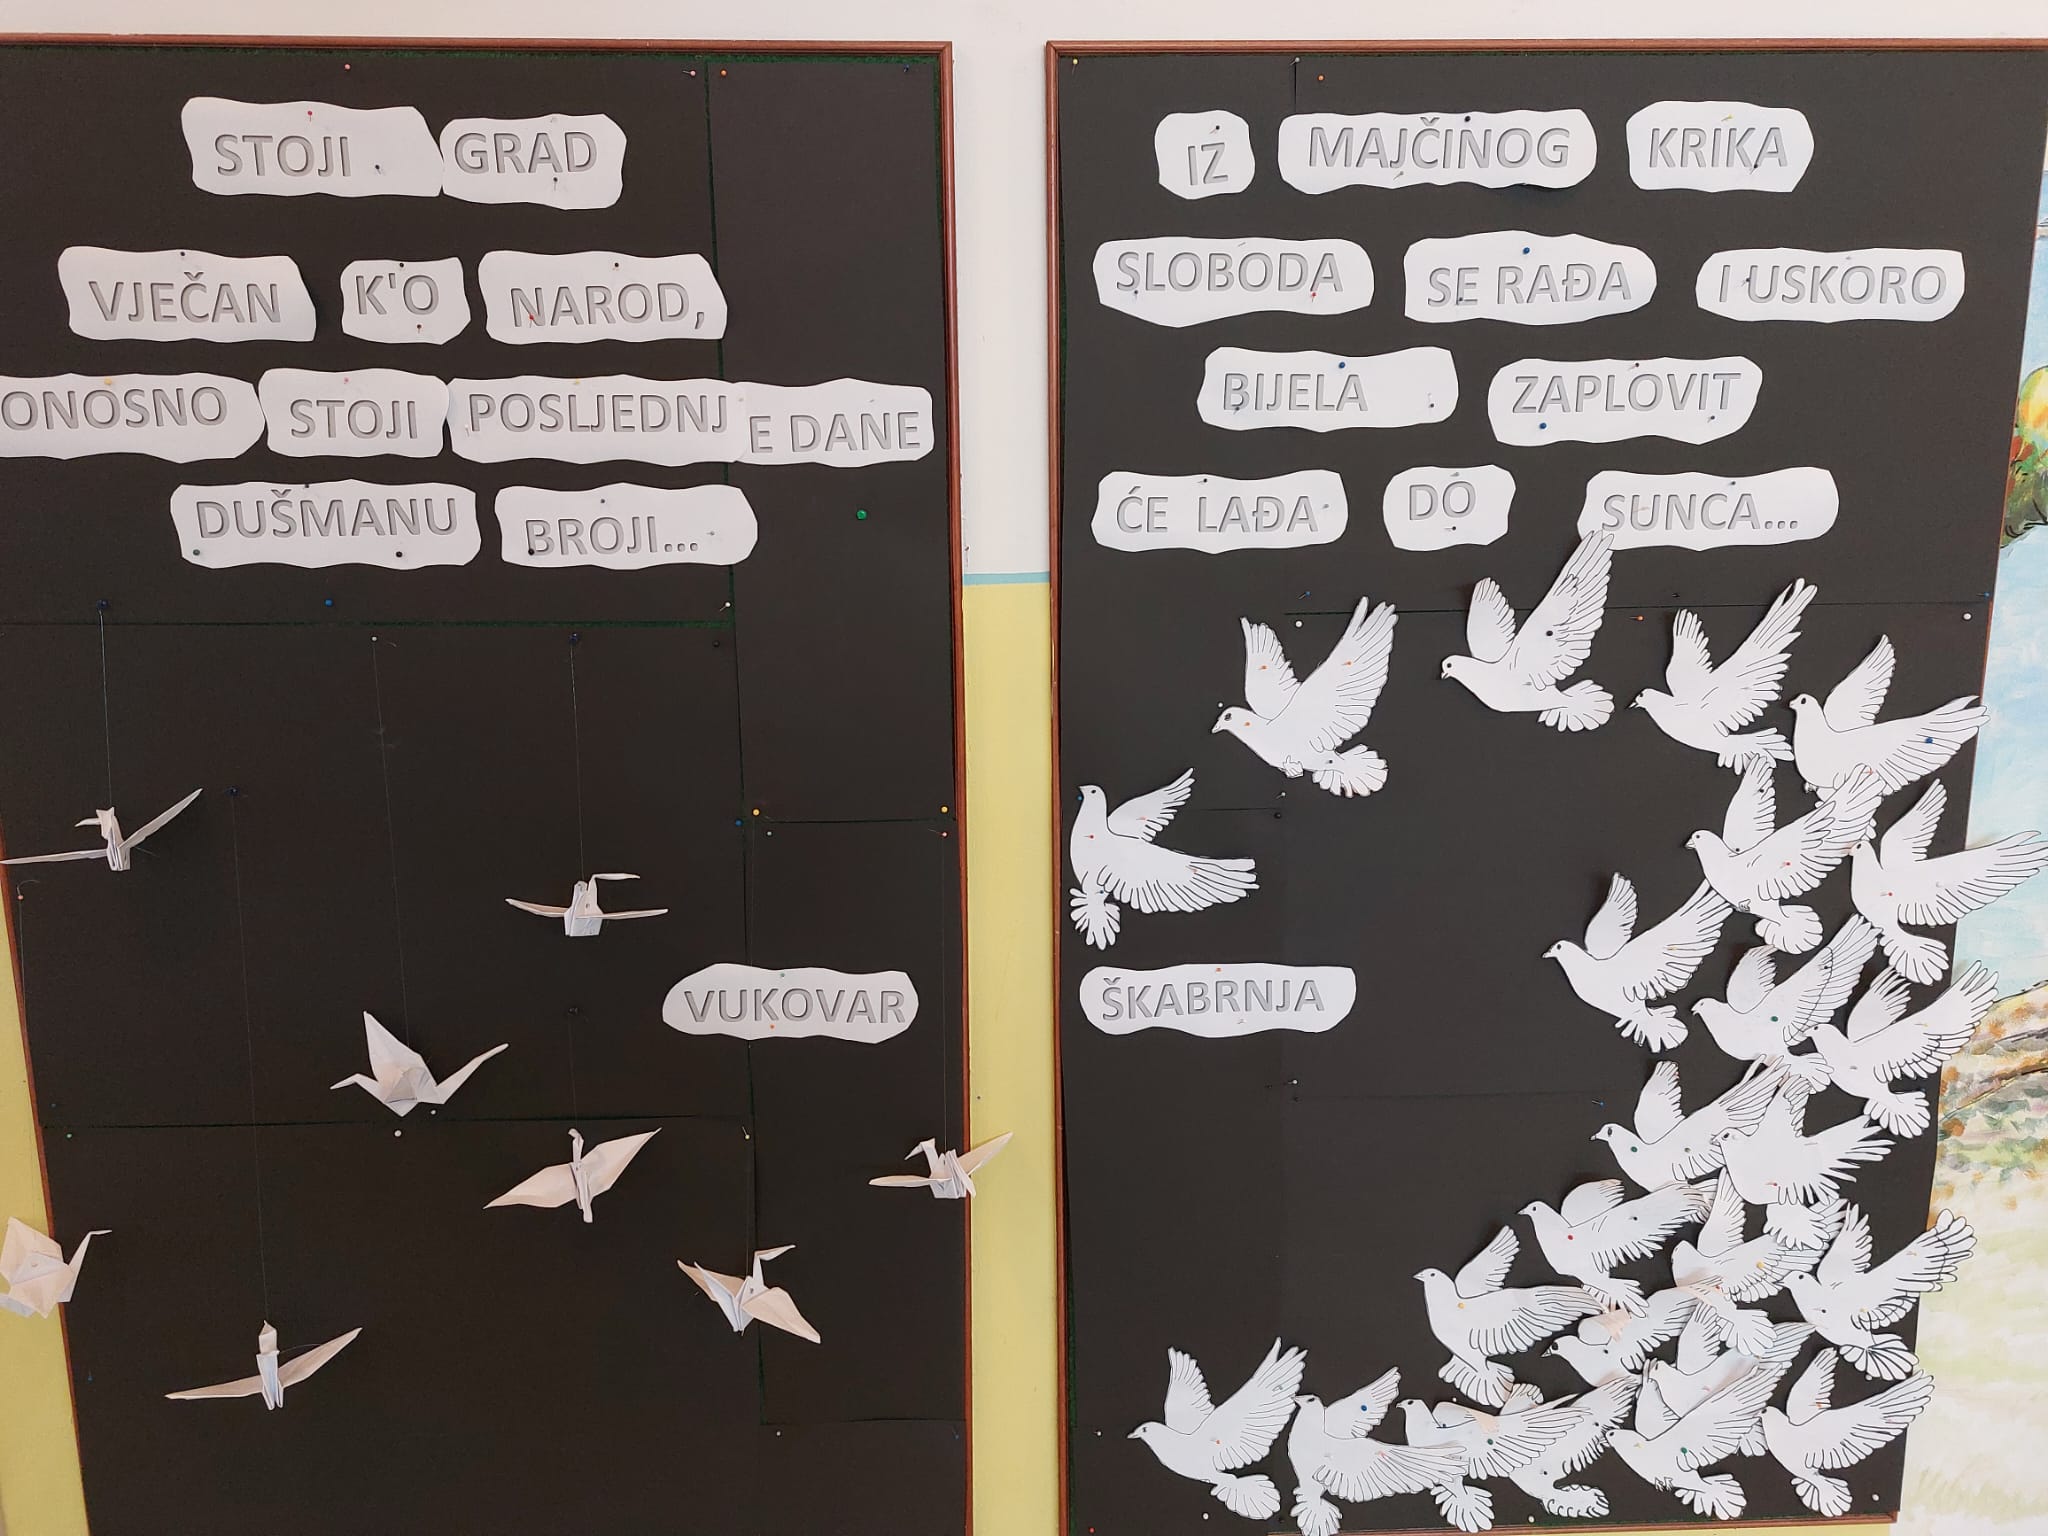 STOJI GRAD
VJEČAN K'O NAROD,
ONOSNO STOJI POSLJEDNJE DANE
DUŠMANU BROJI...
VUKOVAR
IZ MAJČINOG KRIKA
SLOBODA SE RAĐA I USKORO
BIJELA ZAPLOVIT
ĆE LAĐA DO SUNCA...
ŠKABRNJA